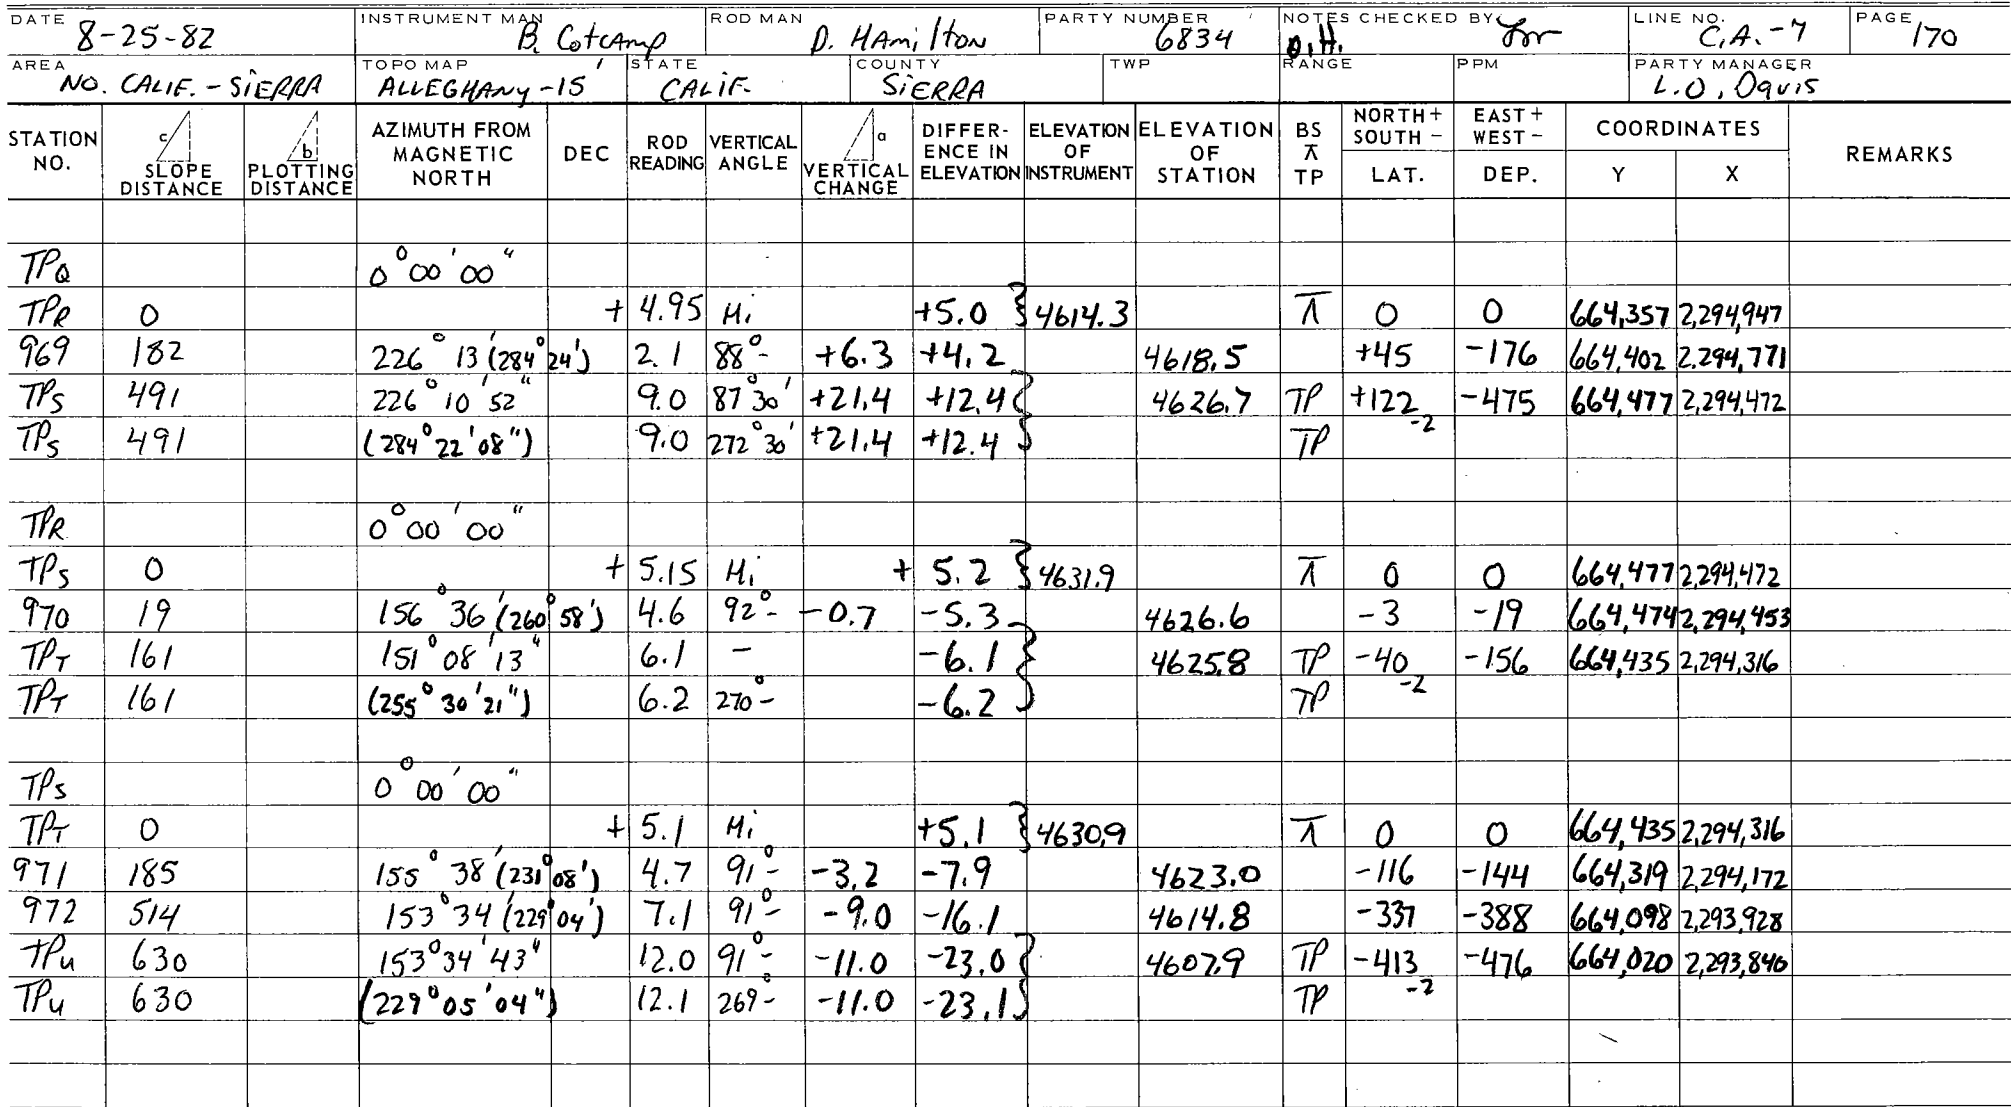 DATE INSTRUMENT MAN ROD MAN PARTY NUMBER NOTES CHECKED BY LINE NO. PAGE
8-25-82 B. Cotcamp D. HAmilton 6834 D.H. C.A.-7 170
AREA TOPO MAP STATE COUNTY TWP RANGE PPM PARTY MANAGER
NO. CALIF. - SiERRA ALLEGHANY-15' CALIF. SiERRA L.O. Davis
STATION NO. c SLOPE DISTANCE b PLOTTING DISTANCE AZIMUTH FROM MAGNETIC NORTH DEC ROD READING VERTICAL ANGLE a VERTICAL CHANGE DIFFER-ENCE IN ELEVATION ELEVATION OF INSTRUMENT ELEVATION OF STATION BS ⊼ TP NORTH + SOUTH - LAT. EAST + WEST - DEP. COORDINATES Y X REMARKS
TPQ 0°00'00"
TPR 0 + 4.95 Hi +5.0 4614.3 ⊼ 0 0 664,357 2,294,947
969 182 226°13'(284°24') 2.1 88°- +6.3 +4.2 4618.5 +45 -176 664,402 2,294,771
TPS 491 226°10'52" 9.0 87°30' +21.4 +12.4 4626.7 TP +122 -475 664,477 2,294,472
TPS 491 (284°22'08") 9.0 272°30' +21.4 +12.4 TP -2
TPR 0°00'00"
TPS 0 + 5.15 Hi + 5.2 4631.9 ⊼ 0 0 664,477 2,294,472
970 19 156°36'(260°58') 4.6 92°- -0.7 -5.3 4626.6 -3 -19 664,474 2,294,453
TPT 161 151°08'13" 6.1 - -6.1 4625.8 TP -40 -156 664,435 2,294,316
TPT 161 (255°30'21") 6.2 270°- -6.2 TP -2
TPS 0°00'00"
TPT 0 + 5.1 Hi +5.1 4630.9 ⊼ 0 0 664,435 2,294,316
971 185 155°38'(231°08') 4.7 91°- -3.2 -7.9 4623.0 -116 -144 664,319 2,294,172
972 514 153°34'(229°04') 7.1 91°- -9.0 -16.1 4614.8 -337 -388 664,098 2,293,928
TPU 630 153°34'43" 12.0 91°- -11.0 -23.0 4607.9 TP -413 -476 664,020 2,293,840
TPU 630 (229°05'04") 12.1 269°- -11.0 -23.1 TP -2